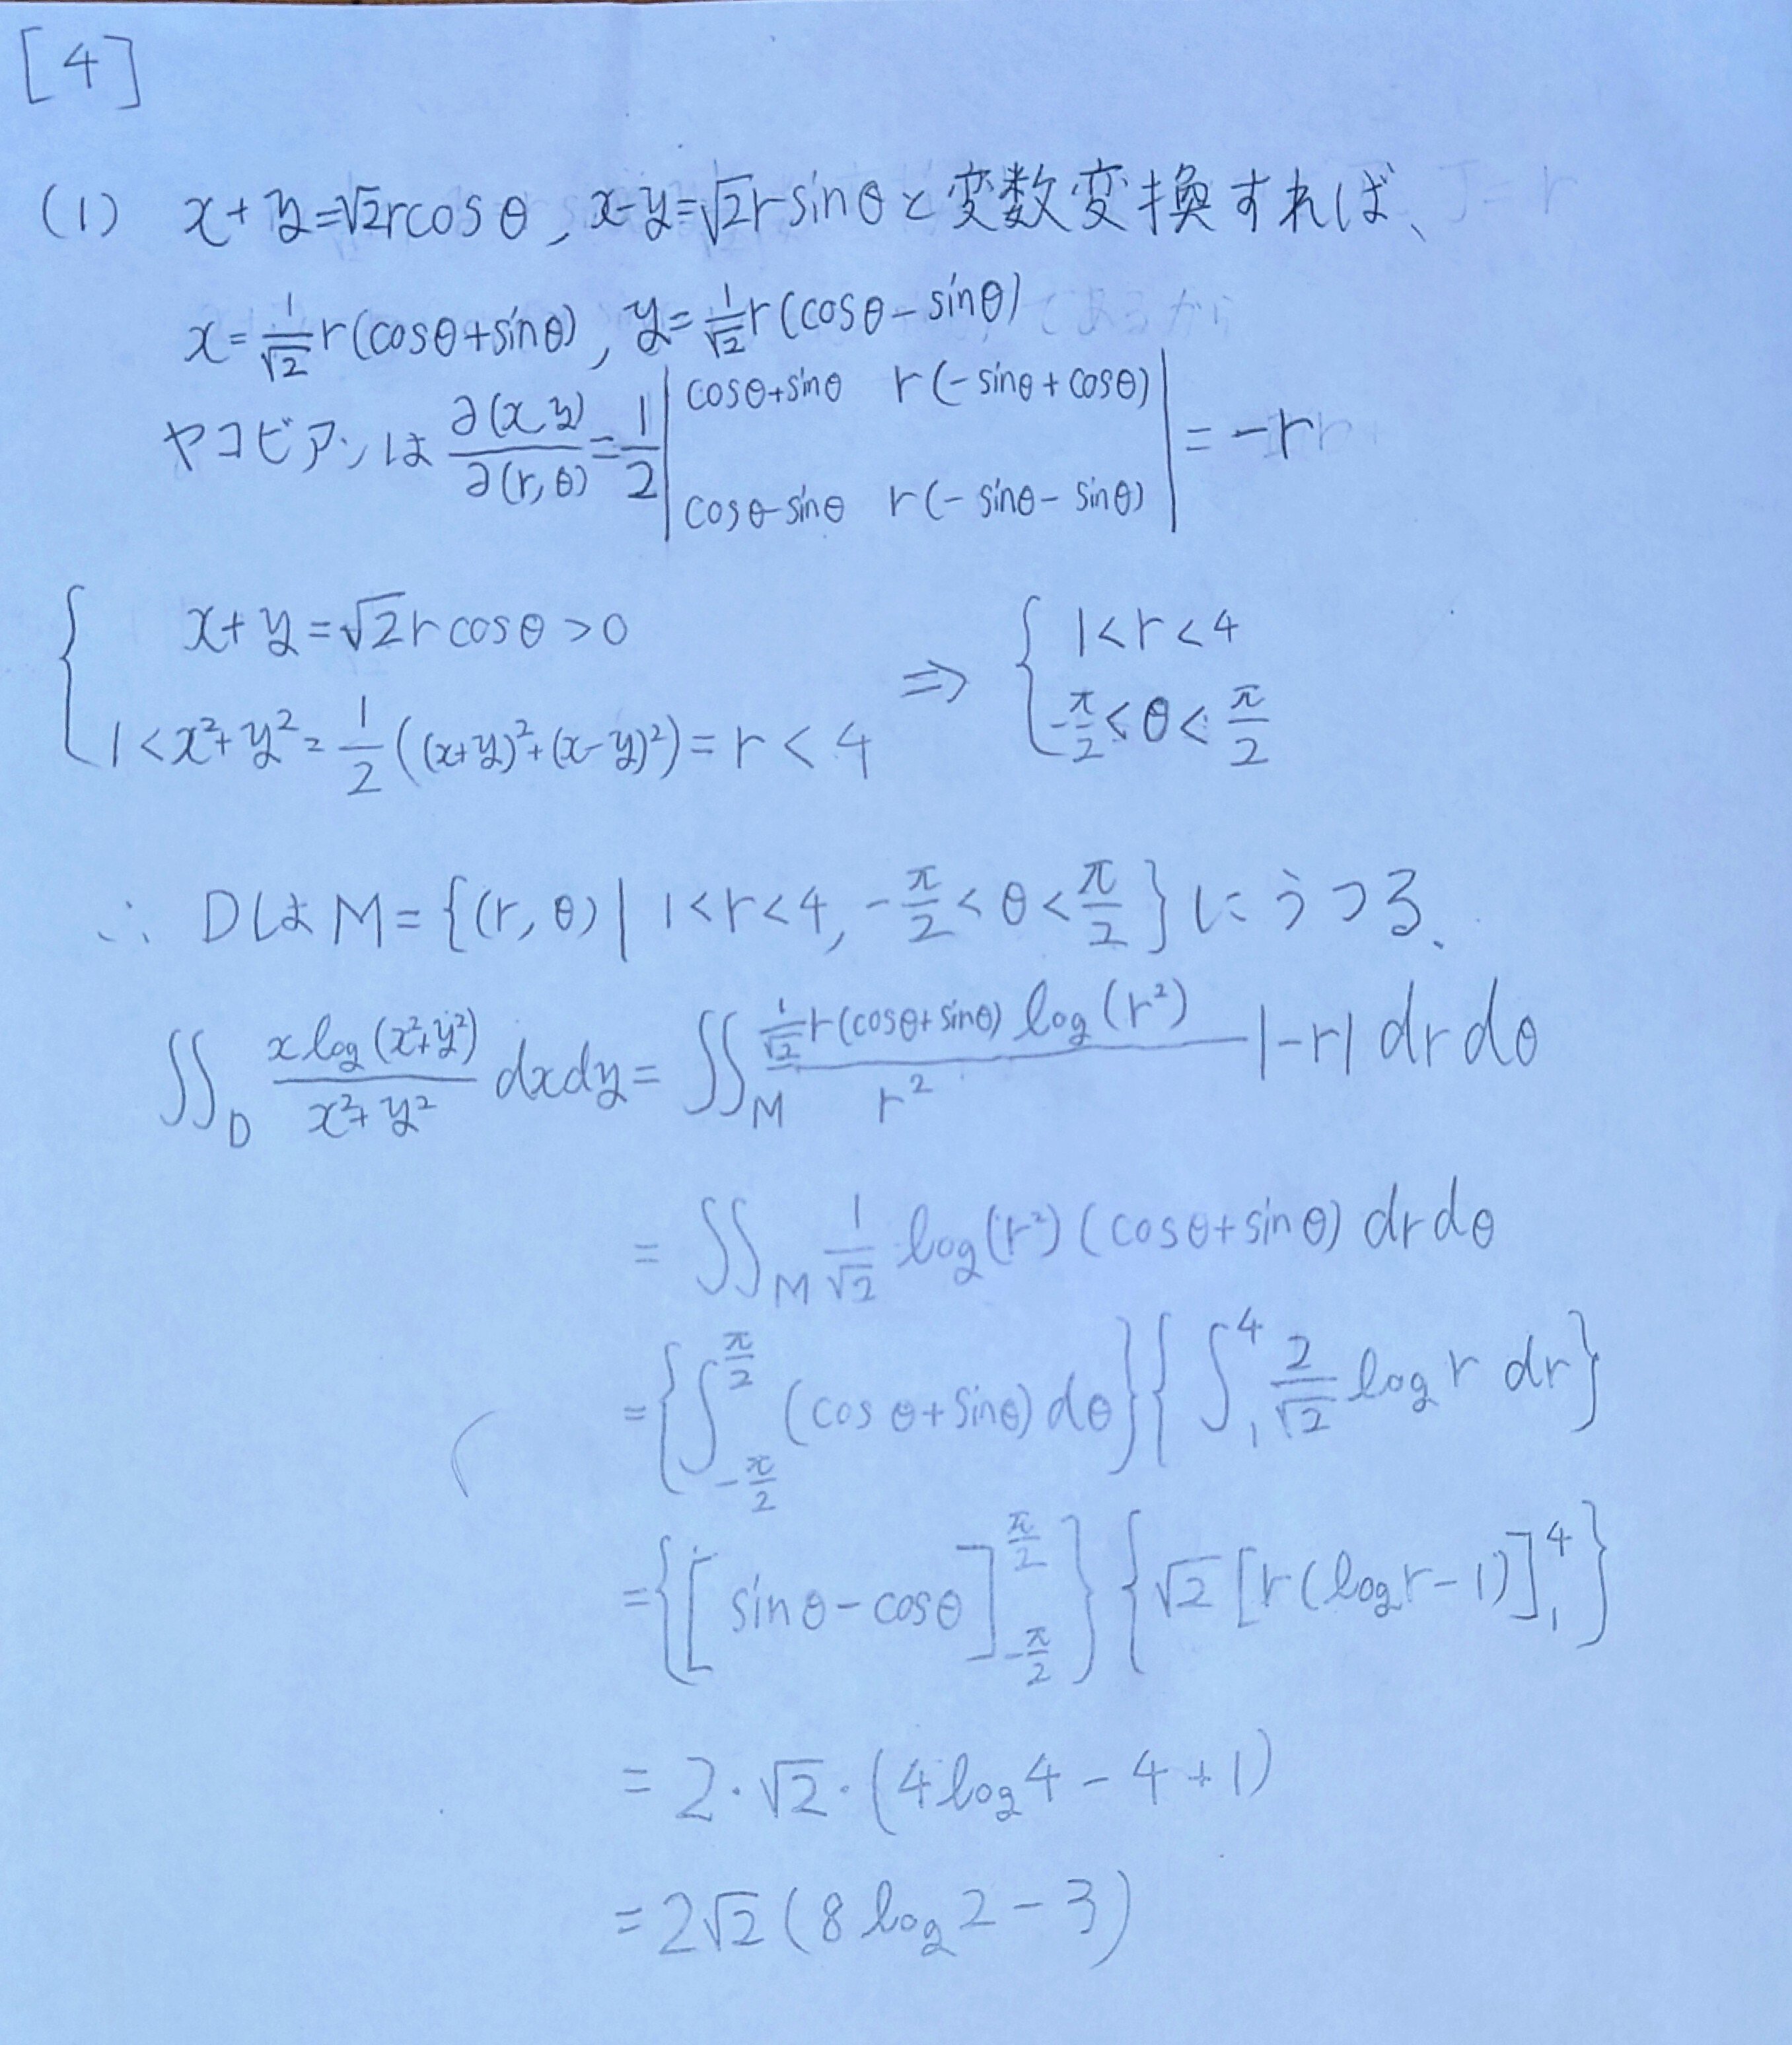 [4]
(1) x+y=√2rcosθ, x-y=√2rsinθと変数変換すれば、
x=1/√2 r(cosθ+sinθ), y=1/√2 r(cosθ-sinθ)
ヤコビアンは ∂(x,y)/∂(r,θ)=1/2 | cosθ+sinθ r(-sinθ+cosθ) |=-r
| cosθ-sinθ r(-sinθ-sinθ) |
{ x+y=√2rcosθ>0 ⇒ { 1<r<4
1<x²+y²=1/2((x+y)²+(x-y)²)=r<4 -π/2<θ<π/2
∴ DはM={(r,θ)| 1<r<4, -π/2<θ<π/2}にうつる、
∬_D xlog(x²+y²)/(x²+y²) dxdy=∬_M 1/√2 r(cosθ+sinθ)log(r²)/r² |-r|drdθ
=∬_M 1/√2 log(r²)(cosθ+sinθ)drdθ
={∫_{-π/2}^{π/2}(cosθ+sinθ)dθ}{∫_1^4 2/√2 logr dr}
={[sinθ-cosθ]_{-π/2}^{π/2}}{√2[r(logr-1)]_1^4}
=2・√2・(4log4-4+1)
=2√2(8log2-3)